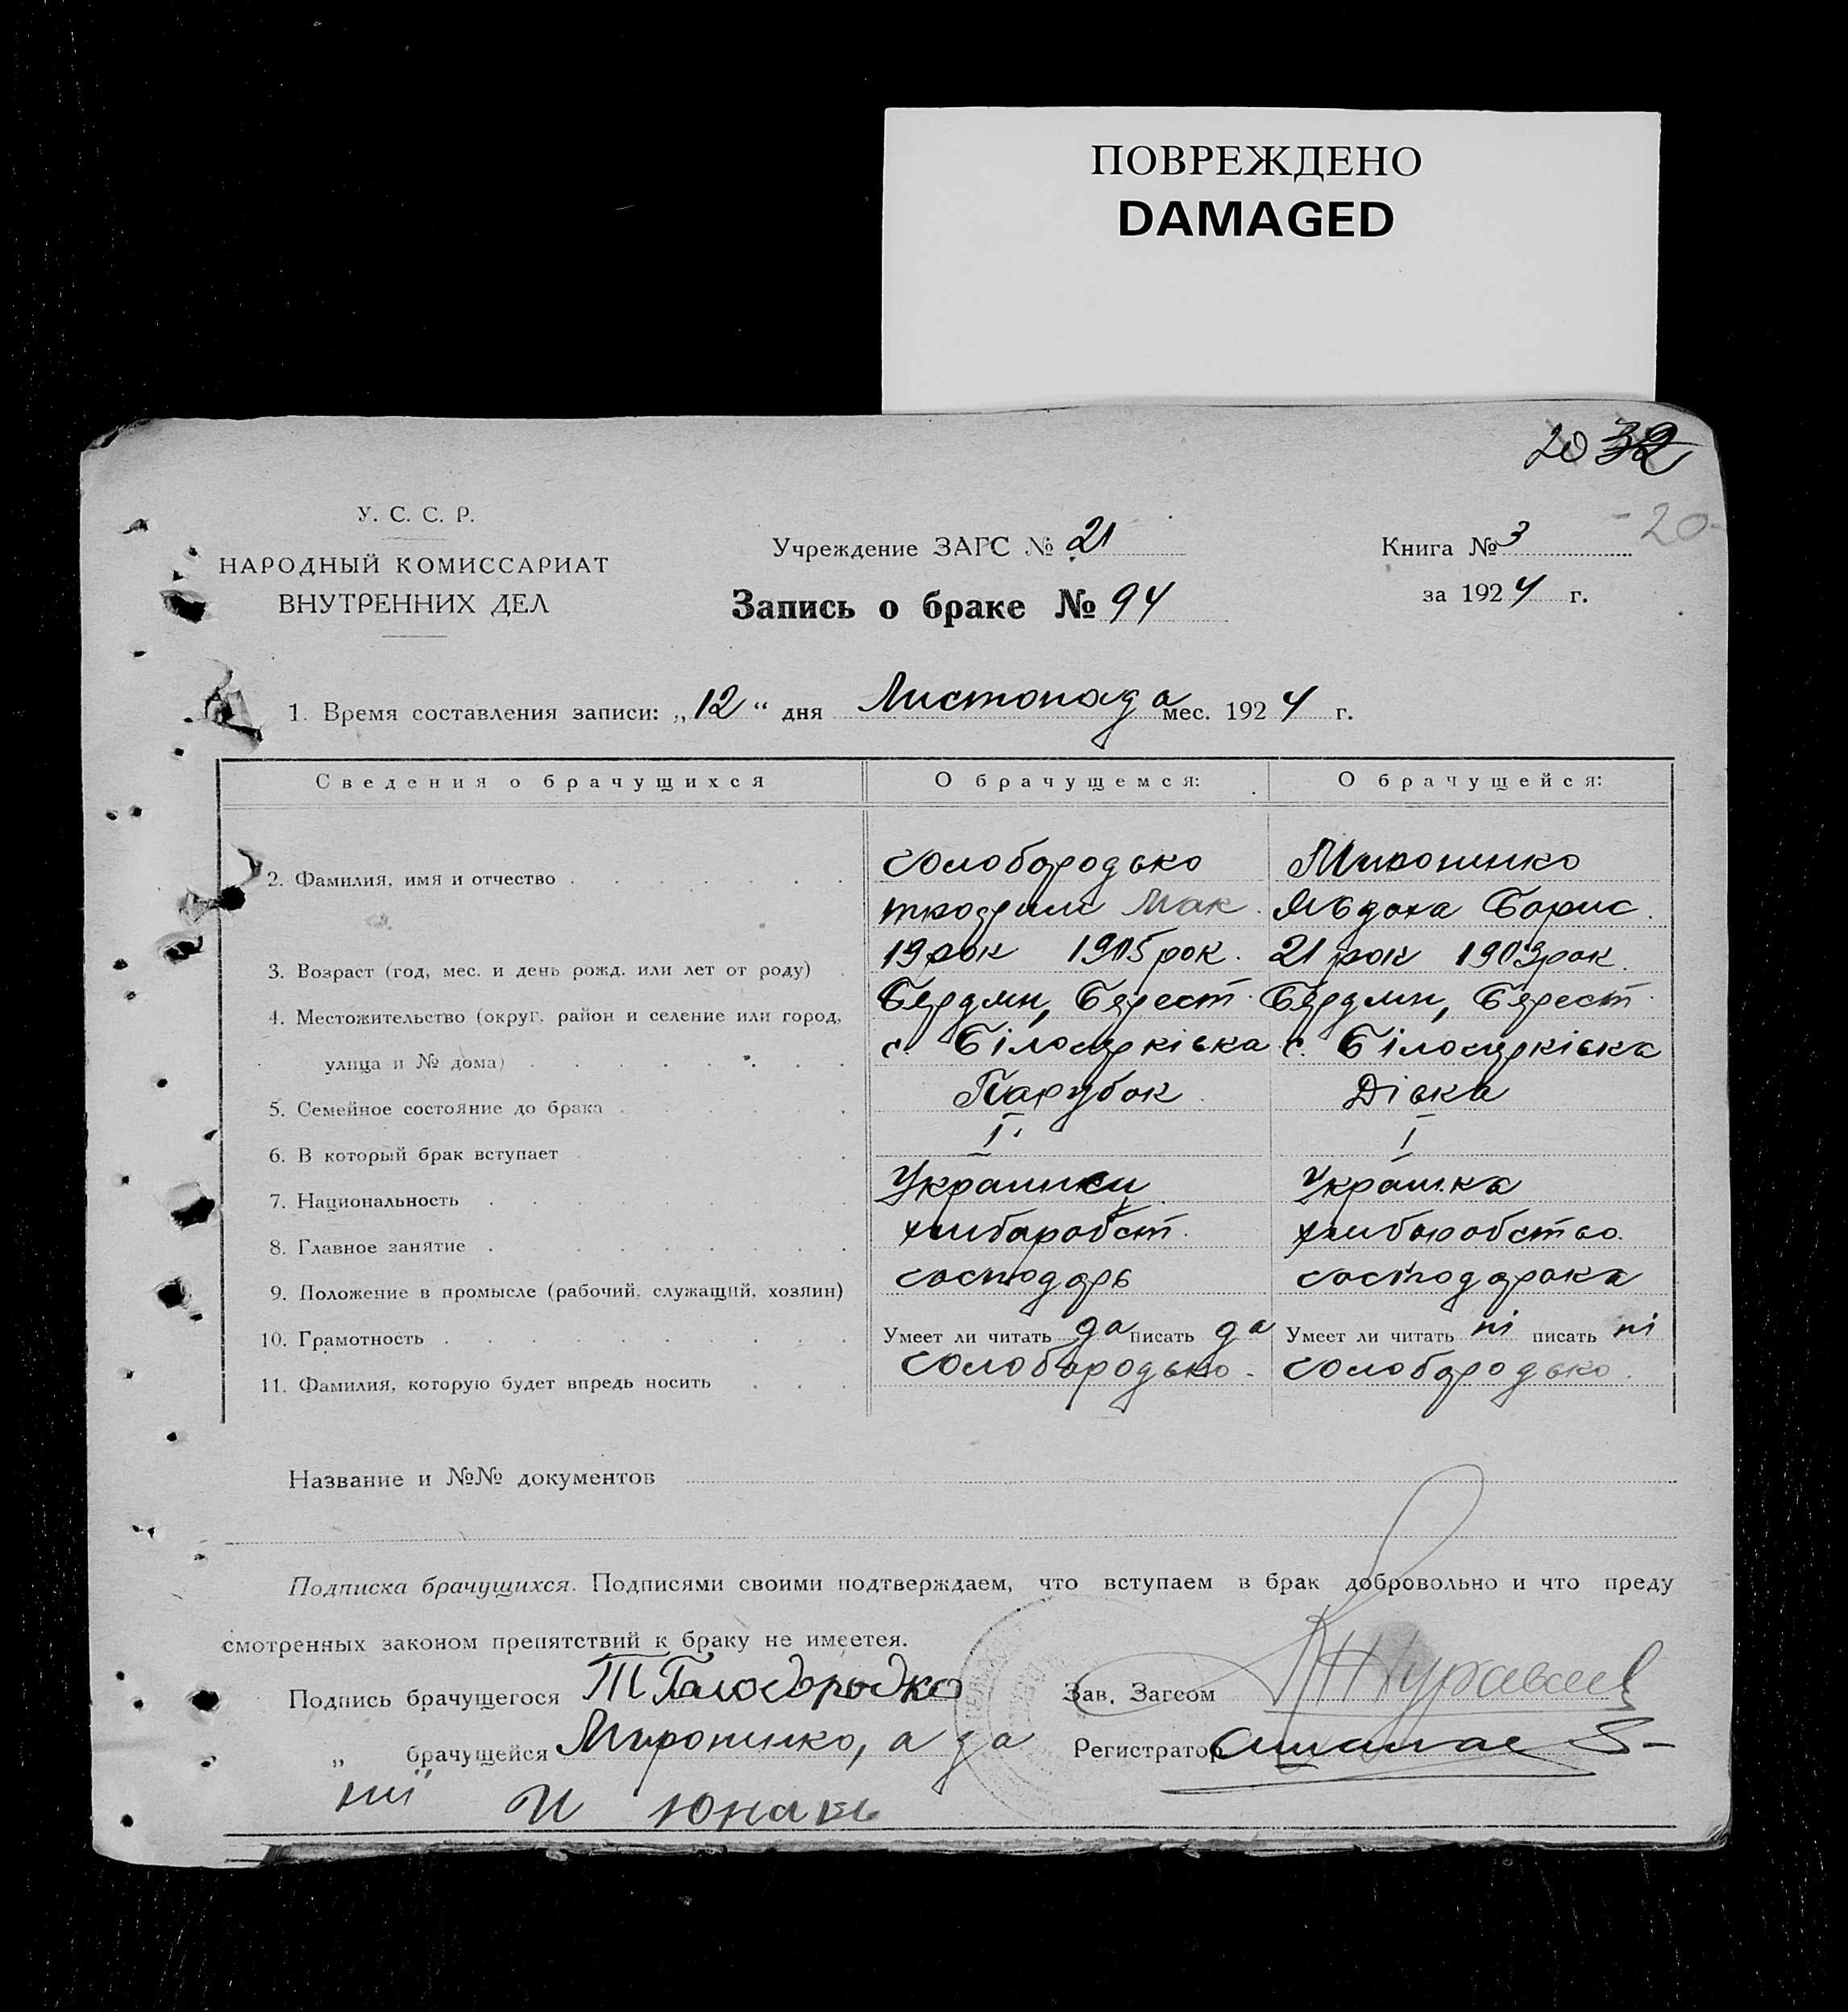 ПОВРЕЖДЕНО
DAMAGED
20 32
-20-
У. С. С. Р.
НАРОДНЫЙ КОМИССАРИАТ
ВНУТРЕННИХ ДЕЛ
Учреждение ЗАГС № 21
Книга № 3
Запись о браке № 94
за 1924 г.
1. Время составления записи: „12“ дня Листопада мес. 1924 г.
Сведения о брачущихся О брачущемся: О брачущейся:
2. Фамилия, имя и отчество Голобородько Миронинко
Мак. Явдоха Борис.
3. Возраст (год, мес. и день рожд. или лет от роду) 19 рок 1905 рок. 21 рок 1903 рок.
4. Местожительство (округ, район и селение или город, Бердян, Берест. Бердян, Берест.
улица и № дома) с. Білоцерківка с. Білоцерківка
5. Семейное состояние до брака Парубок Дівка
6. В который брак вступает I I
7. Национальность Украинец Украінка
8. Главное занятие хлибаробст. хлибаробство.
9. Положение в промысле (рабочий, служащий, хозяин) господарь господарька
10. Грамотность Умеет ли читать да писать да Умеет ли читать ні писать ні
11. Фамилия, которую будет впредь носить Голобородько Голобородько.
Название и №№ документов
Подписка брачущихся. Подписями своими подтверждаем, что вступаем в брак добровольно и что преду
смотренных законом препятствий к браку не имеется.
Подпись брачущегося Т Галобородко Зав. Загсом
„ брачущейся Миронинко, а за Регистратор
ниї И Юнакь